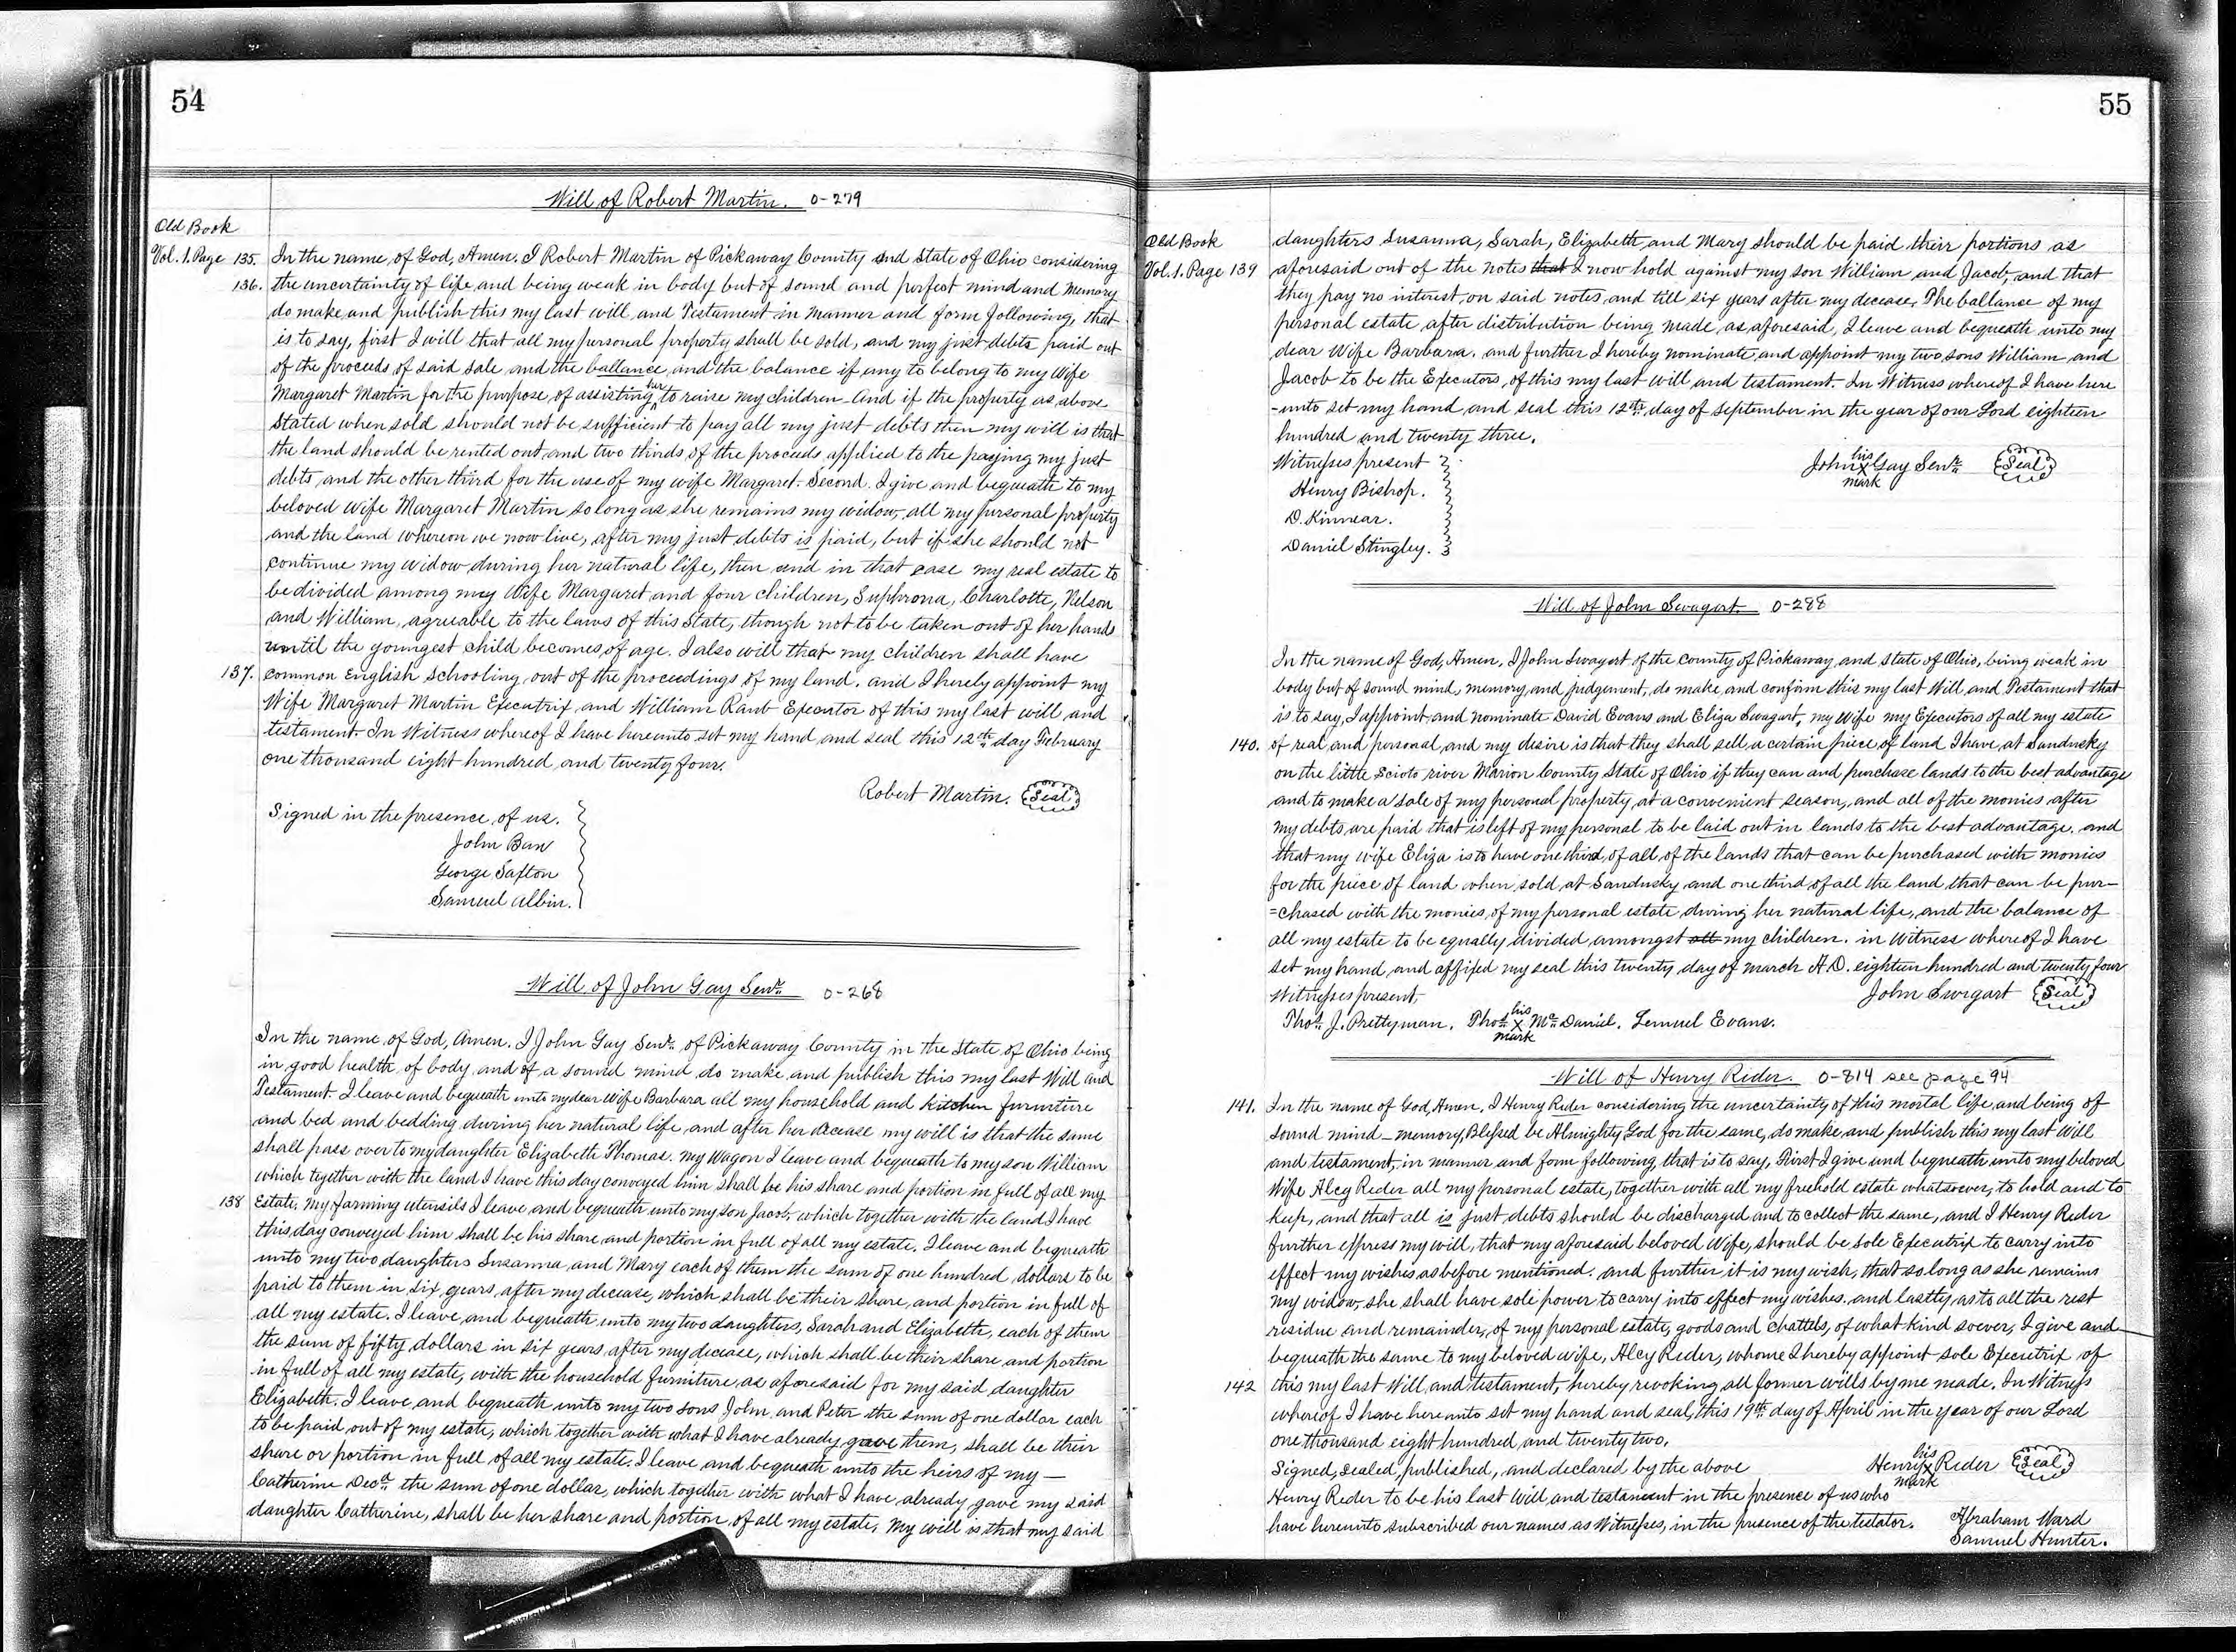 54
Will of Robert Martin. 0-279
Old Book
Vol. 1. Page 135. In the name of God, Amen. I Robert Martin of Pickaway County and State of Ohio considering
136. the uncertainty of life and being weak in body but of sound and perfect mind and memory
do make and publish this my last will and Testament in manner and form following, that
is to say, first I will that all my personal property shall be sold, and my just debts paid out
of the proceeds of said sale and the ballance, and the balance if any to belong to my Wife
Margaret Martin for the purpose of assisting her to raise my children And if the property as above
stated when sold should not be sufficient to pay all my just debts then my will is that
the land should be rented out and two thirds of the proceeds applied to the paying my just
debts, and the other third for the use of my wife Margaret. Second. I give and bequeath to my
beloved Wife Margaret Martin so long as she remains my widow, all my personal property
and the land whereon we now live, after my just debts is paid, but if she should not
continue my widow during her natural life, then and in that case my real estate to
be divided among my Wife Margaret and four children, Suphrona, Charlotte, Nelson
and William, agreeable to the laws of this State, though not to be taken out of her hands
until the youngest child becomes of age. I also will that my children shall have
137. common English schooling out of the proceedings of my land. and I hereby appoint my
Wife Margaret Martin Executrix and William Raub Executor of this my last will and
testament. In Witness whereof I have hereunto set my hand and seal this 12th day February
one thousand eight hundred and twenty four.
Robert Martin. Seal
Signed in the presence of us.
John
George
Samuel Albin.
Will of John Gay Senr. 0-268
In the name of God, Amen. I John Gay Senr. of Pickaway County in the State of Ohio being
in good health of body and of a sound mind do make and publish this my last Will and
Testament. I leave and bequeath unto my dear Wife Barbara all my household and kitchen furniture
and bed and bedding during her natural life and after her decease my will is that the same
shall pass over to my daughter Elizabeth Thomas. my Wagon I leave and bequeath to my son William
which together with the land I have this day conveyed him shall be his share and portion in full of all my
138 Estate. My farming utensils I leave and bequeath unto my son Jacob, which together with the land I have
this day conveyed him shall be his share and portion in full of all my estate. I leave and bequeath
unto my two daughters Susanna and Mary each of them the sum of one hundred dollars to be
paid to them in six years after my decease, which shall be their share and portion in full of
all my estate. I leave and bequeath unto my two daughters, Sarah and Elizabeth, each of them
the sum of fifty dollars in six years after my decease, which shall be their share and portion
in full of all my estate, with the household furniture as aforesaid for my said daughter
Elizabeth. I leave and bequeath unto my two sons John and Peter the sum of one dollar each
to be paid out of my estate, which together with what I have already gave them, shall be their
share or portion in full of all my estate. I leave and bequeath unto the heirs of my —
Catherine Decd. the sum of one dollar, which together with what I have already gave my said
daughter Catherine, shall be her share and portion of all my estate. My will is that my said
55
Old Book
daughters Susanna, Sarah, Elizabeth and Mary should be paid their portions as
Vol. 1. Page 139 aforesaid out of the notes that I now hold against my son William and Jacob, and that
they pay no interest on said notes, and till six years after my decease. The ballance of my
personal estate after distribution being made as aforesaid, I leave and bequeath unto my
dear Wife Barbara. and further I hereby nominate and appoint my two sons William and
Jacob to be the Executors of this my last will and testament. In Witness whereof I have here
-unto set my hand and seal this 12th day of September in the year of our Lord eighteen
hundred and twenty three.
Witnesses present
John his X mark Gay Senr. Seal
Henry Bishop.
D. Kinnear.
Daniel Stingley.
Will of John Swagart. 0-288
In the name of God, Amen, I John Swagart of the County of Pickaway and State of Ohio, being weak in
body but of sound mind, memory and judgement, do make and confirm this my last Will and Testament that
is to say, I appoint and nominate David Evans and Eliza Swagart, my Wife my Executors of all my estate
140. of real and personal, and my desire is that they shall sell a certain piece of land I have at Sandusky
on the little Scioto river Marion County State of Ohio if they can and purchase lands to the best advantage
and to make a sale of my personal property at a convenient season, and all of the monies after
my debts are paid that is left of my personal to be laid out in lands to the best advantage. and
that my wife Eliza is to have one third of all of the lands that can be purchased with monies
for the piece of land when sold at Sandusky and one third of all the land that can be pur-
=chased with the monies of my personal estate during her natural life, and the balance of
all my estate to be equally divided amongst all my children. in Witness whereof I have
set my hand and affixed my seal this twenty day of march A.D. eighteen hundred and twenty four
Witnesses present,
John Swigart Seal
Thos. J. Prettyman. Thos. his X mark McDaniel. Lemuel Evans.
Will of Henry Rider. 0-814 see page 94
141. In the name of God, Amen, I Henry Rider considering the uncertainty of this mortal life, and being of
sound mind – memory, Blessed be Almighty God for the same, do make and publish this my last Will
and testament, in manner and form following, that is to say, First I give and bequeath unto my beloved
Wife Alcy Rider all my personal estate, together with all my freehold estate whatsoever, to hold and to
keep, and that all is just debts should be discharged and to collect the same, and I Henry Rider
further express my will, that my aforesaid beloved Wife, should be Sole Executrix to carry into
effect my wishes as before mentioned. and further it is my wish, that so long as she remains
my widow, she shall have sole power to carry into effect my wishes. and lastly, as to all the rest
residue and remainder, of my personal estate, goods and chattels, of what kind soever, I give and
bequeath the same to my beloved wife, Alcy Rider, whome I hereby appoint sole Executrix of
142 this my last Will and testament, hereby revoking all former wills by me made. In Witness
whereof I have hereunto set my hand and seal, this 19th day of April in the year of our Lord
one thousand eight hundred and twenty two.
Signed, sealed, published, and declared by the above
Henry his X mark Rider Seal
Henry Rider to be his last Will and testament in the presence of us who
have hereunto subscribed our names as Witnesses, in the presence of the testator. Abraham Ward
Samuel Hunter.